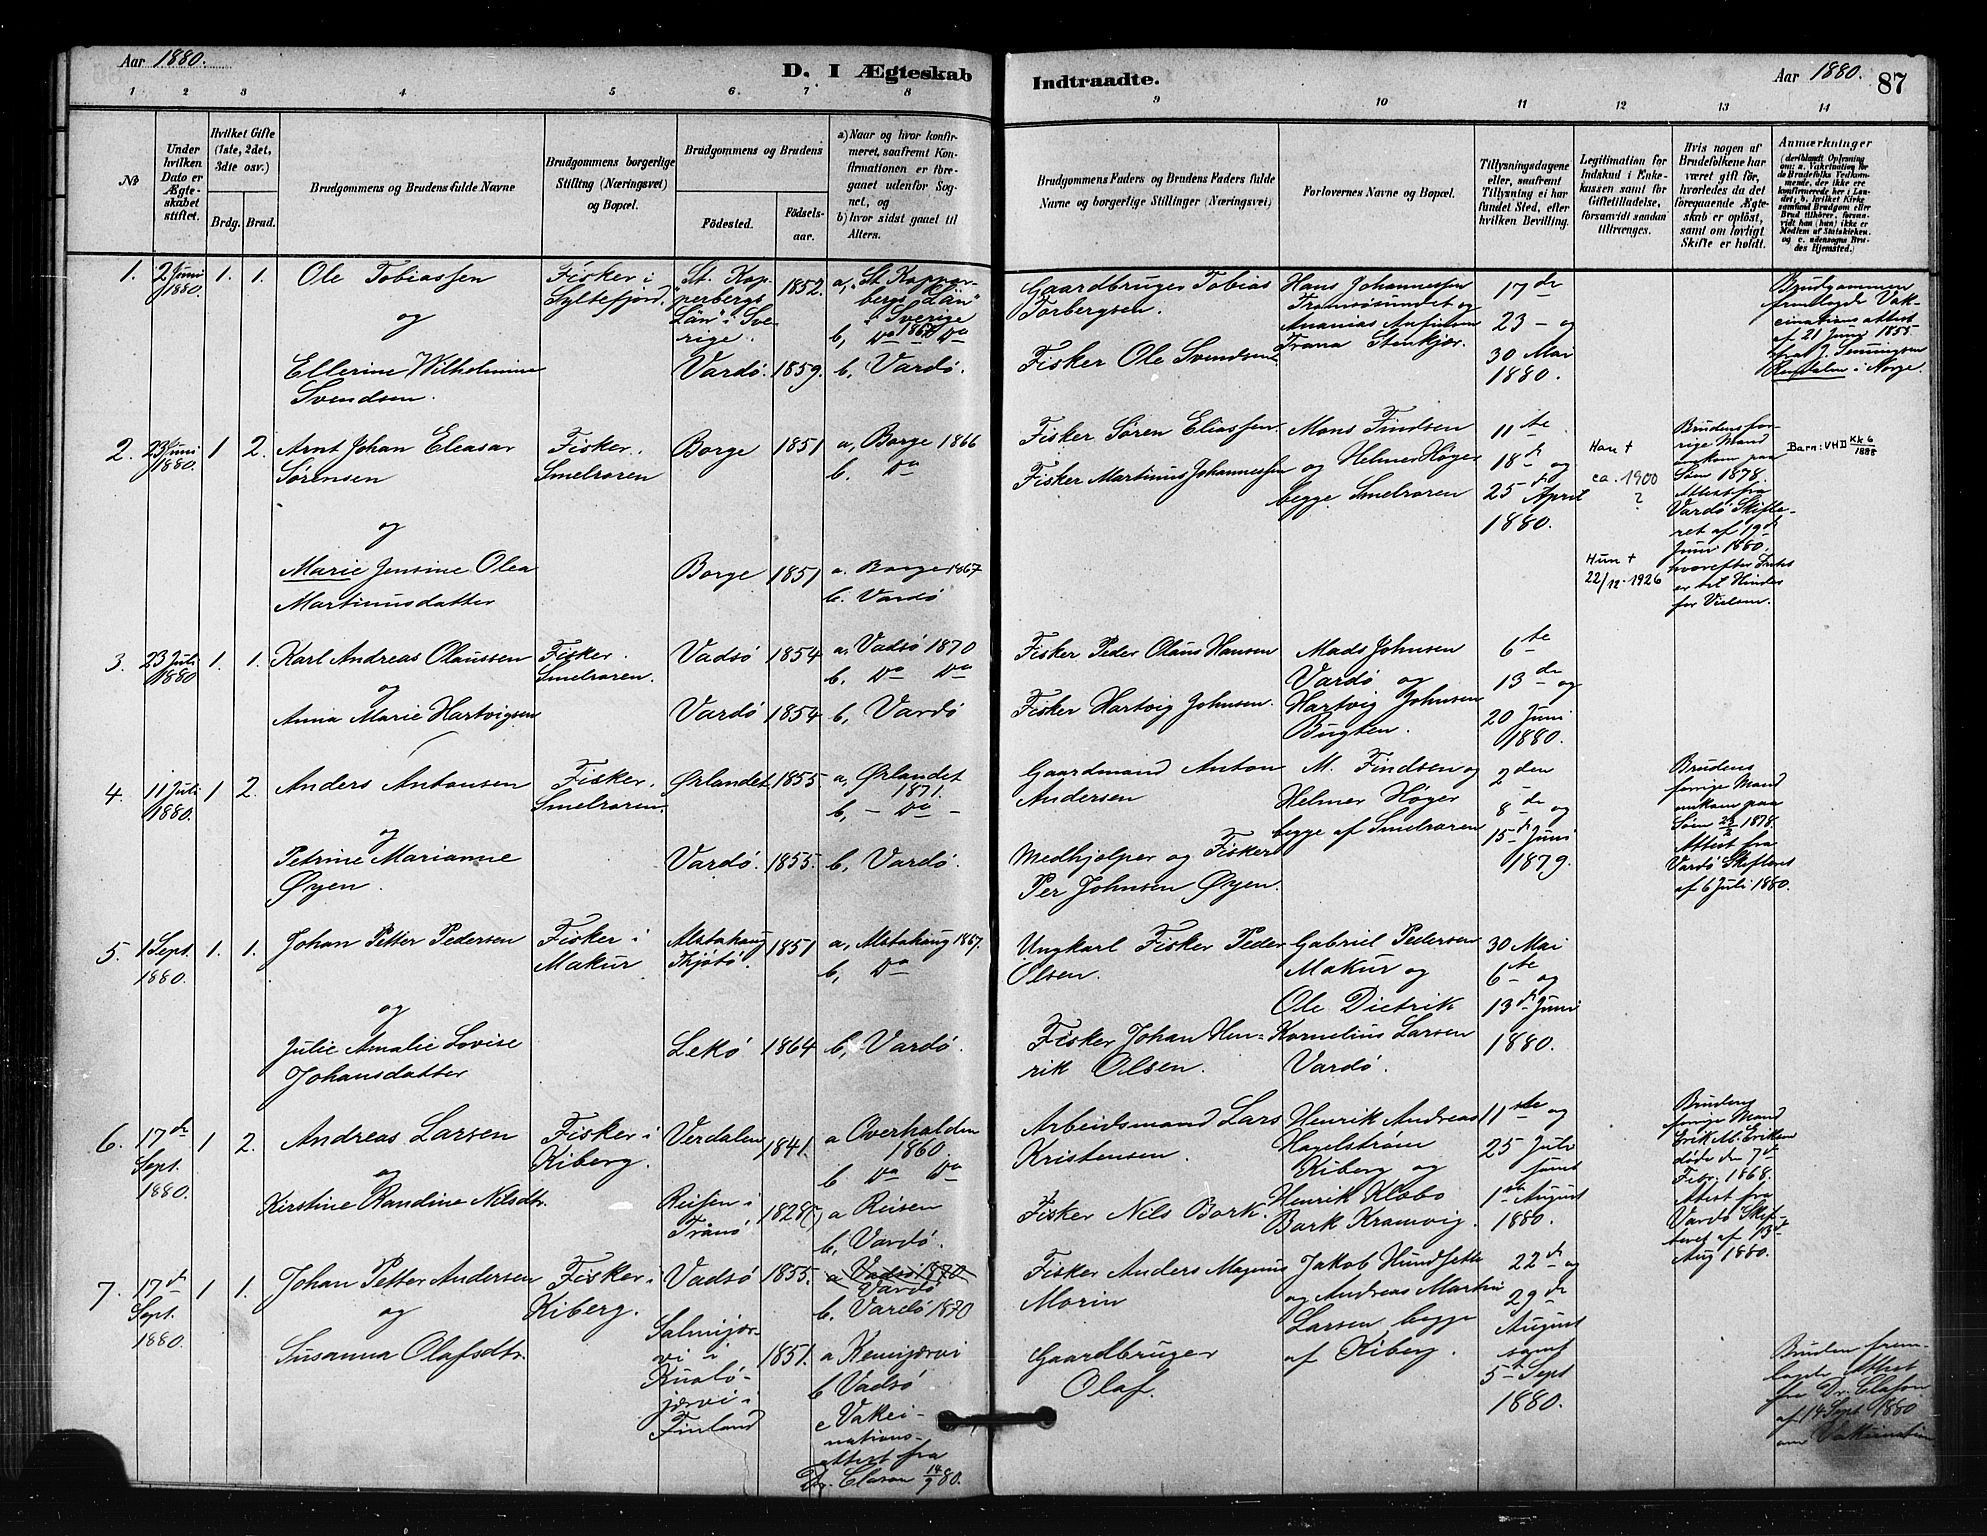 Aar 1880.
D. I Ægteskab
Indtraadte.
Aar 1880.
87
1 2 3 4 5 6. 7. 8
9 10 11 12 13 14
No
Under hvilken Dato er Ægteskabet stiftet.
Hvilket Gifte (1ste, 2det, 3dte osv.)
Brdg. Brud.
Brudgommens og Brudens fulde Navne
Brudgommens borgerlige Stilling (Næringsvei) og Bopæl.
Brudgommens og Brudens
Fødested.
Fødselsaar.
a) Naar og hvor konfirmeret, saafremt Konfirmationen er foregaaet udenfor Sognet, og
b) hvor sidst gaaet til Alters.
Brudgommens Faders og Brudens Faders fulde Navne og borgerlige Stillinger (Næringsvei)
Forlovernes Navne og Bopæl.
Tillysningsdagene eller, saafremt Tillysning ei har fundet Sted, efter hvilken Bevilling.
Legitimation for Indskud i Enkekassen samt for Giftetilladelse, forsaavidt saadan tiltrænges.
Hvis nogen af Brudefolkene har været gift før, hvorledes da det foregaaende Ægteskab er opløst, samt om lovligt Skifte er holdt.
Anmærkninger
1. 2 Juni 1880. 1. 1.
Ole Tobiassen
og
Ellerine Wilhelmine
Svendsen.
Fisker i
Syltefjord.
St. Kop
perbergs
Län i Sve
rige.
1852.
a, St. Koppar
bergs "Län"
i Sverige
1868
b, Do Do
Vardø. 1859. b, Vardø.
Gaardbruger Tobias
Torbergsen.
Fisker Ole Svendsen
Hans Johannessen
Tromsøsundet og
Ananias Anfinsen
Trana Stenkjær.
17 de
23 – og
30 Mai
1880.
Brudgommen
fremlagde Vak
cinationsattest
af 21 Juni 1855
fra J. Senningsen
Rendalen i Norge.
2. 23 Juni 1880. 1 2.
Arnt Johan Eleasar
Sørensen
og
Marie Jensine Olea
Martinusdatter
Fisker.
Smelroren
Borge 1851 a, Borge 1866
b. Do
Borge 1851 a. Borge 1867
b. Vardø
Fisker Søren Eliassen
Fisker Martinus Johannessen
Mons Findsen
og Helmer Høger
begge Smelroren
11 te
18 de og
25 de April
1880.
Han +
ca. 1900
?
Hun +
22/12-1926
Brudens for
rige Mand
omkom paa
Søen 1878.
Attest fra
Vardø Skifte-
ret af 19 de
Juni 1880.
hvorefter Intet
er til Hinder
for Vielsen.
Barn: VHD Kk 6
1888
3. 23 Juli 1880 1. 1.
Karl Andreas Olaussen
og
Anna Marie Hartvigsen
Fisker.
Smelroren.
Vadsø 1854 a. Vadsø 1870
b. Do Do
Vardø 1854. b, Vardø
Fisker Peder Olaus Hansen
Fisker Hartvig Johnsen.
Mads Johnsen
Vardø og
Hartvig Johnsen
Bugten.
6 te
13 de og
20 Juni
1880.
4. 11 Juli 1880. 1 2.
Anders Antonsen
og
Petrine Marianne
Øyen.
Fisker.
Smelroren.
Ørlandet 1855 a, Ørlandet
1871.
b, – Do –
Vardø. 1855. b, Vardø.
Gaardmand Anton
Andersen
Medhjelper og Fisker
Per Johnsen Øyen.
M. Findsen og
Helmer Høger
begge af Smelroren
2 den
8 de og
15 de Juni
1879.
Brudens
forrige Mand
omkom paa
Søen 1878.
Attest fra
Vardø Skifteret
af 6 Juli 1880.
5. 1 Sept. 1880. 1. 1.
Johan Petter Pedersen
og
Julie Amalie Lovise
Johansdatter
Fisker i
Makur
Alstahaug
Thjøtø.
1851 a, Alstahaug 1867.
b, Do
Lekø 1864 b, Vardø.
Ungkarl Fisker Peder
Olsen.
Fisker Johan Hen-
rik Olsen.
Gabriel Pedersen
Makur og
Ole Dietrik
Kornelius Larsen
Vardø.
30 Mai
6 te og
13 de Juni
1880.
6. 17 de Sept. 1880. 1 2.
Andreas Larsen
og
Kirstine Randine Nilsdtr.
Fisker i
Kiberg.
Verdalen 1841. a Overhalden
1860.
b Do Do
Reisen i
Tranø
1828 a Reisen
b. Vardø.
Arbeidsmand Lars
Kristensen.
Fisker Nils Bork.
Henrik Andreas
Hagelstrøm
Kiberg og
Henrik Klobo
Bark Kramvig.
11 te og
25 Juli
samt
1 ste August
1880.
Brudens
forrige Mand
Erik M. Eriksen
døde den 7 de
Febr. 1868.
Attest fra
Vardø Skif-
teret af 13 de
Aug 1880.
7. 17 de Sept. 1880 1 1.
Johan Petter Andersen
og
Susanna Olafsdtr.
Fisker i
Kiberg.
Vadsø 1855. a Vadsø 1870
Vardø
b. Vardø 1870
Salmijær-
vi i
Kuolo-
jærvi i
Finland
1851. a Kemijærvi
b Vadsø
c Vakci-
nations-
attest fra
Dr. Clason 14/9 80.
Fisker Anders Magnus
Morin
Gaardbruger
Olaf.
Jakob Hundsette
og Andreas Martin
Larsen begge
af Kiberg.
22 de og
29 de
August
samt
5 te Sept
1880.
Bruden frem-
lagde Attest
fra Dr. Clason
af 14 Sept 1880
om Vakcination